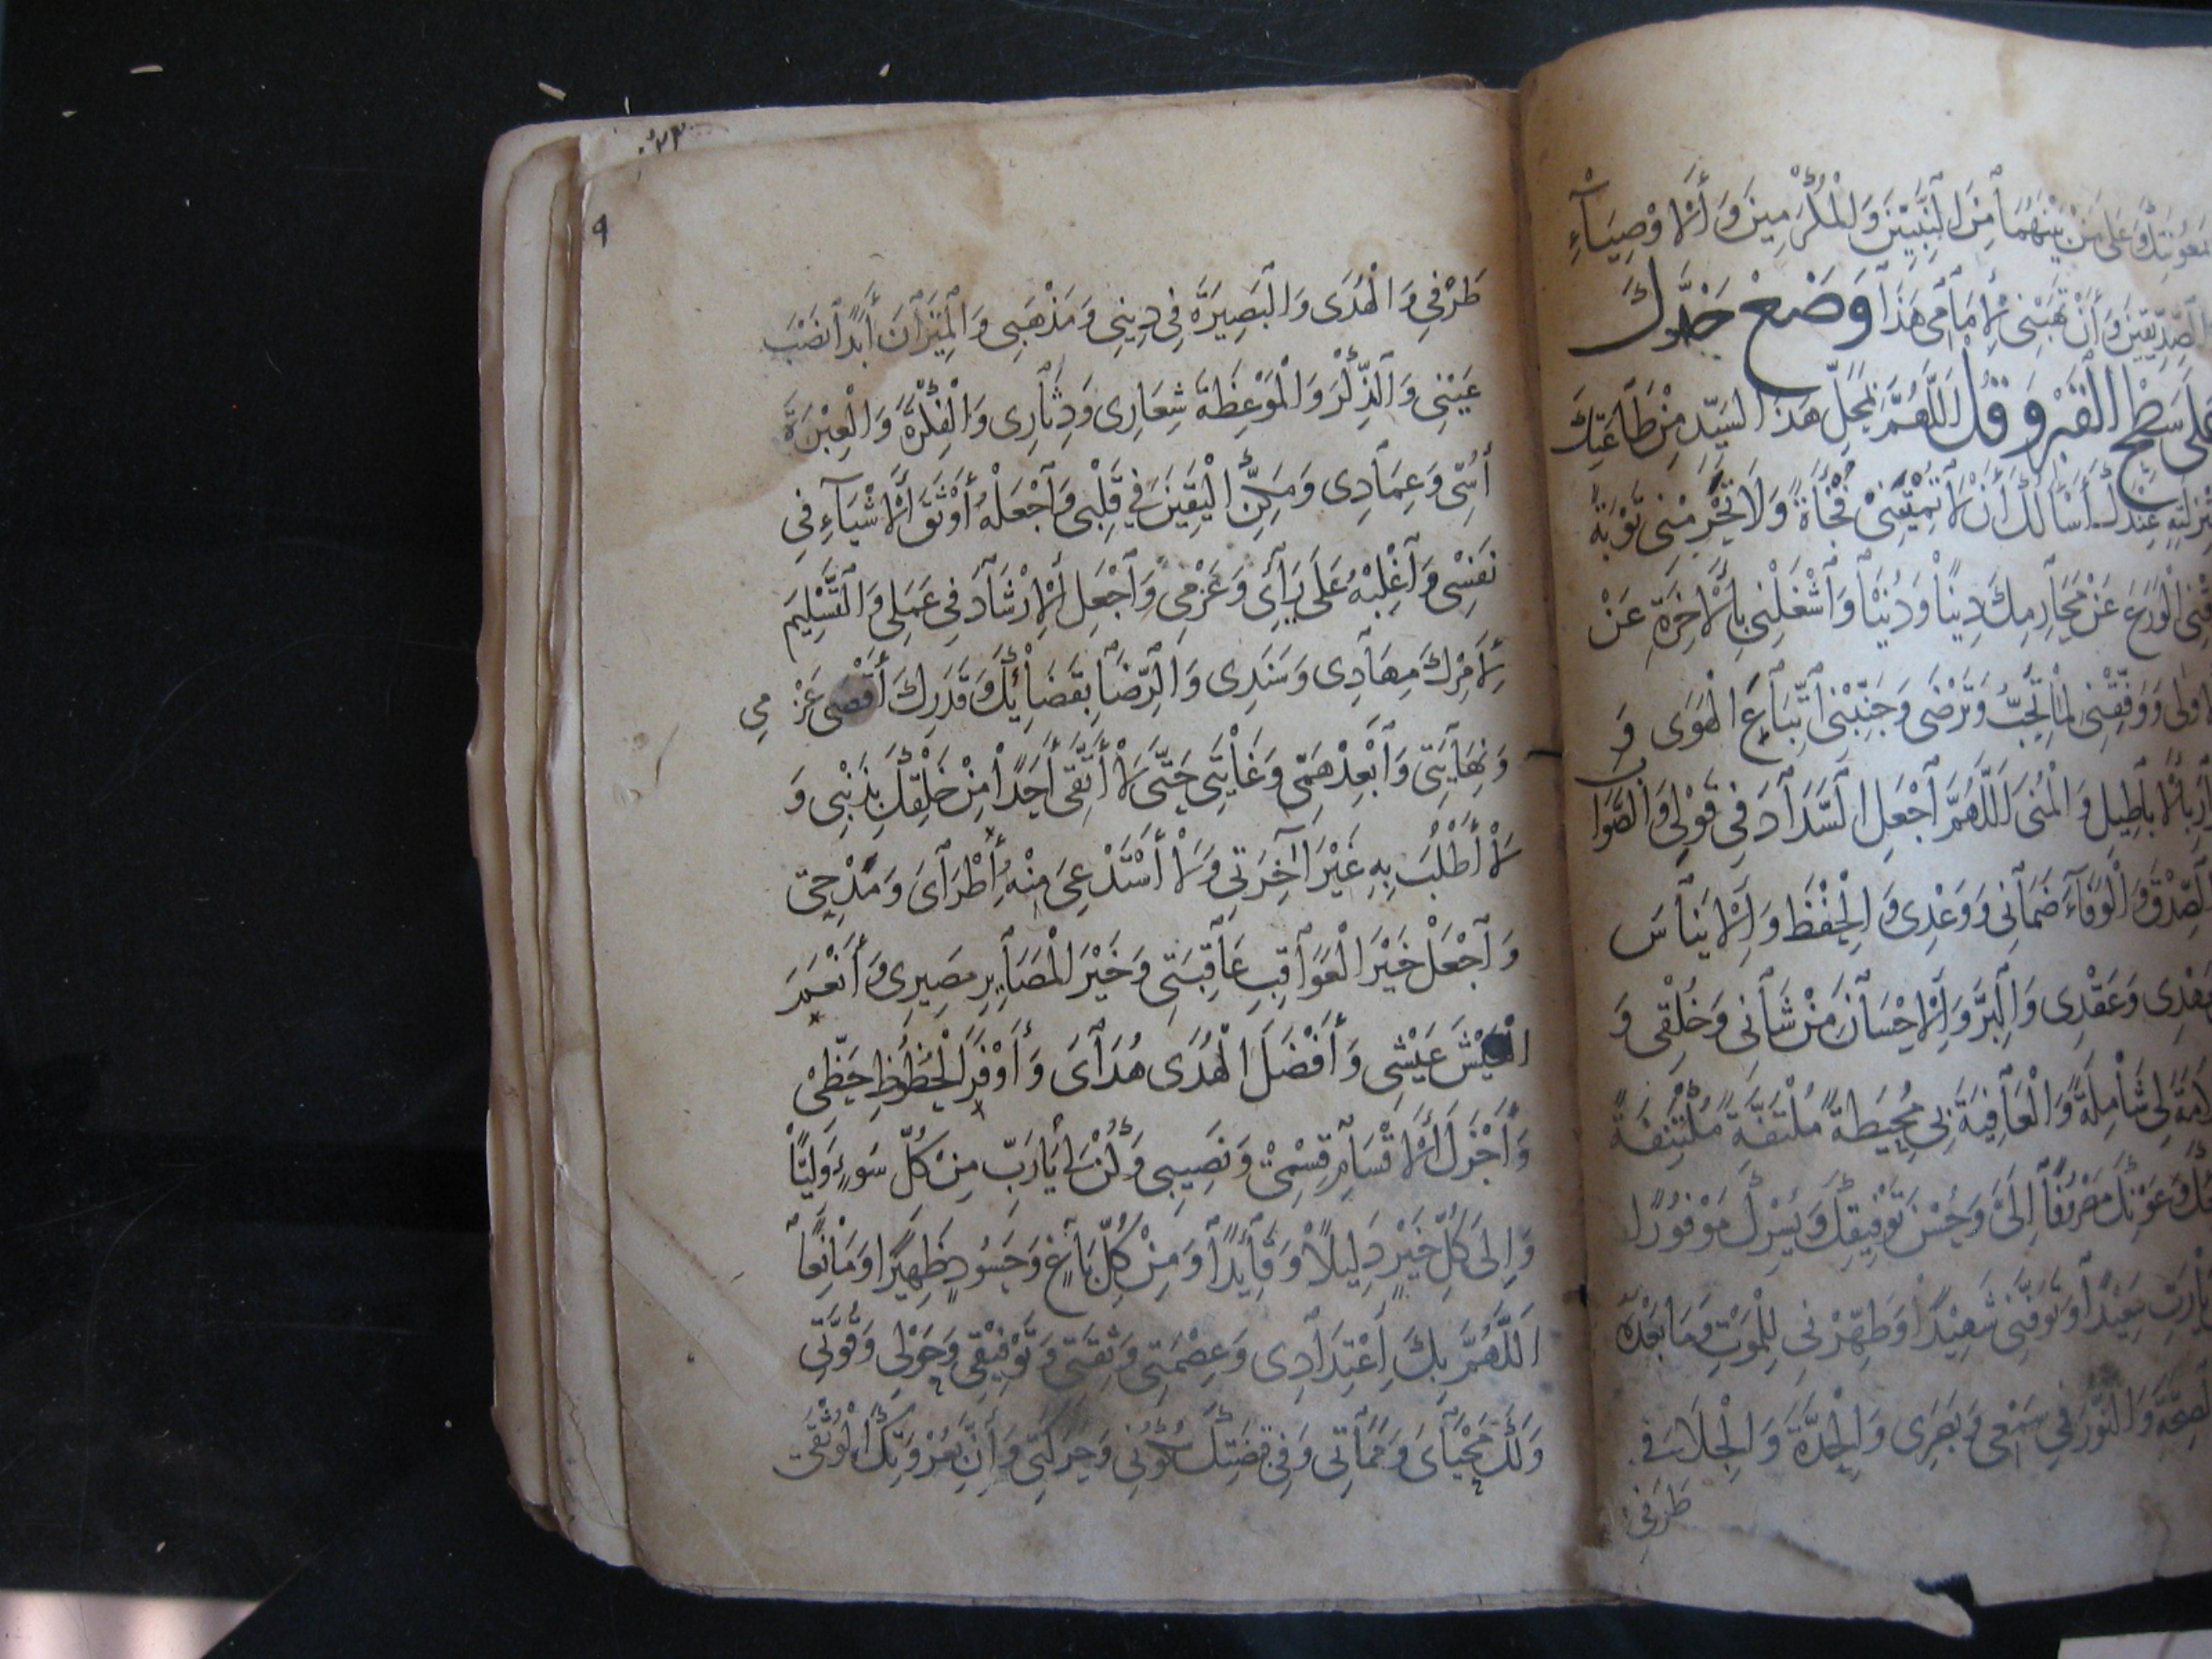 مَعُونَتِكَ وَعَلَى مَنْ بَيْنَهُمَا مِنَ النَّبِيِّينَ وَالْمُكَرَّمِينَ وَالْأَوْصِيَاءِ
الصِّدِّيقِينَ وَأَنْ تَهَبَنِي لِإِمَامِي هَذَا وَضَعْ خَدَّكَ
عَلَى سَطْحِ الْقَبْرِ وَقُلْ اَللَّهُمَّ بِمَحَلِّ هَذَا السَّيِّدِ مِنْ طَاعَتِكَ
مَنْزِلَتِهِ عِنْدَكَ أَسْأَلُكَ أَنْ لَا تُمِيتَنِي فُجْأَةً وَلَا تَحْرِمْنِي تَوْبَةً
الْوَرَعَ عَنْ مَحَارِمِكَ دِينًا وَدُنْيَا وَاشْغَلْنِي بِالْآخِرَةِ عَنْ
وَوَفِّقْنِي لِمَا تُحِبُّ وَتَرْضَى وَجَنِّبْنِي اتِّبَاعَ الْهَوَى وَ
بِالْأَبَاطِيلِ وَالْمُنَى اَللَّهُمَّ اجْعَلِ السَّدَادَ فِي قَوْلِي وَالصَّوَا
الصِّدْقَ وَالْوَفَاءَ ضَمَانِي وَوَعْدِي وَالْحِفْظَ وَالْإِينَاسَ
وَعَقْدِي وَالْبِرَّ وَالْإِحْسَانَ مِنْ شَأْنِي وَخُلُقِي وَ
لِي شَامِلَةً وَالْعَافِيَةَ بِي مُحِيطَةً مُلْتَفَّةً مُكْتَنِفَةً
وَعَوْنَكَ مَصْرُوفًا إِلَيَّ وَحُسْنَ تَوْفِيقِكَ وَيُسْرِكَ مَوْفُورًا
سَعِيدًا وَتَوَفَّنِي شَهِيدًا وَطَهِّرْنِي لِلْمَوْتِ وَمَا بَعْدَهُ
الصِّحَّةَ وَالنُّورَ فِي سَمْعِي وَبَصَرِي وَالْجِدَةَ وَ فِي
طَرَفِي
٩
طَرْفِي وَالْهُدَى وَالْبَصِيرَةَ فِي دِينِي وَمَذْهَبِي وَالْمِيزَانَ أَبَدًا نَصْبَ
عَيْنِي وَالذِّكْرَ وَالْمَوْعِظَةَ شِعَارِي وَدِثَارِي وَالْفِكْرَةَ وَالْعِبْرَةَ
أُسِّي وَعِمَادِي وَمَكِّنِ الْيَقِينَ فِي قَلْبِي وَاجْعَلْهُ أَوْثَقَ الْأَشْيَاءِ فِي
نَفْسِي وَاغْلِبْهُ عَلَى رَأْيِي وَعَزْمِي وَاجْعَلِ الْإِرْشَادَ فِي عَمَلِي وَالتَّسْلِيمَ
لِأَمْرِكَ مِهَادِي وَسَنَدِي وَالرِّضَا بِقَضَائِكَ وَقَدَرِكَ أَقْصَى عَزْمِي
وَنِهَايَتِي وَأَبْعَدَ هَمِّي وَغَايَتِي حَتَّى لَا أَتَّقِي أَحَدًا مِنْ خَلْقِكَ بِذَنْبِي وَ
لَا أَطْلُبَ بِهِ غَيْرَ آخِرَتِي وَلَا أَسْتَدْعِيَ مِنْهُ إِطْرَايَ وَمَدْحِي
وَاجْعَلْ خَيْرَ الْعَوَاقِبِ عَاقِبَتِي وَخَيْرَ الْمَصَايِرِ مَصِيرِي وَأَنْعَمَ
الْعَيْشِ عَيْشِي وَأَفْضَلَ الْهُدَى هُدَايَ وَأَوْفَرَ الْحُظُوظِ حَظِّي
وَأَجْزَلَ الْأَقْسَامِ قِسْمِي وَنَصِيبِي وَكُنْ لِي يَا رَبِّ مِنْ كُلِّ سُوءٍ وَلِيًّا
وَإِلَى كُلِّ خَيْرٍ دَلِيلًا وَقَايِدًا وَمِنْ كُلِّ بَاغٍ وَحَسُودٍ ظَهِيرًا وَمَانِعًا
اَللَّهُمَّ بِكَ اعْتِدَادِي وَعِصْمَتِي وَثِقَتِي وَتَوْفِيقِي وَحَوْلِي وَقُوَّتِي
وَلَكَ مَحْيَايَ وَمَمَاتِي وَفِي قَبْضَتِكَ سُكُونِي وَحَرَكَتِي وَأَنَّ بِعُرْوَتِكَ الْوُثْقَى